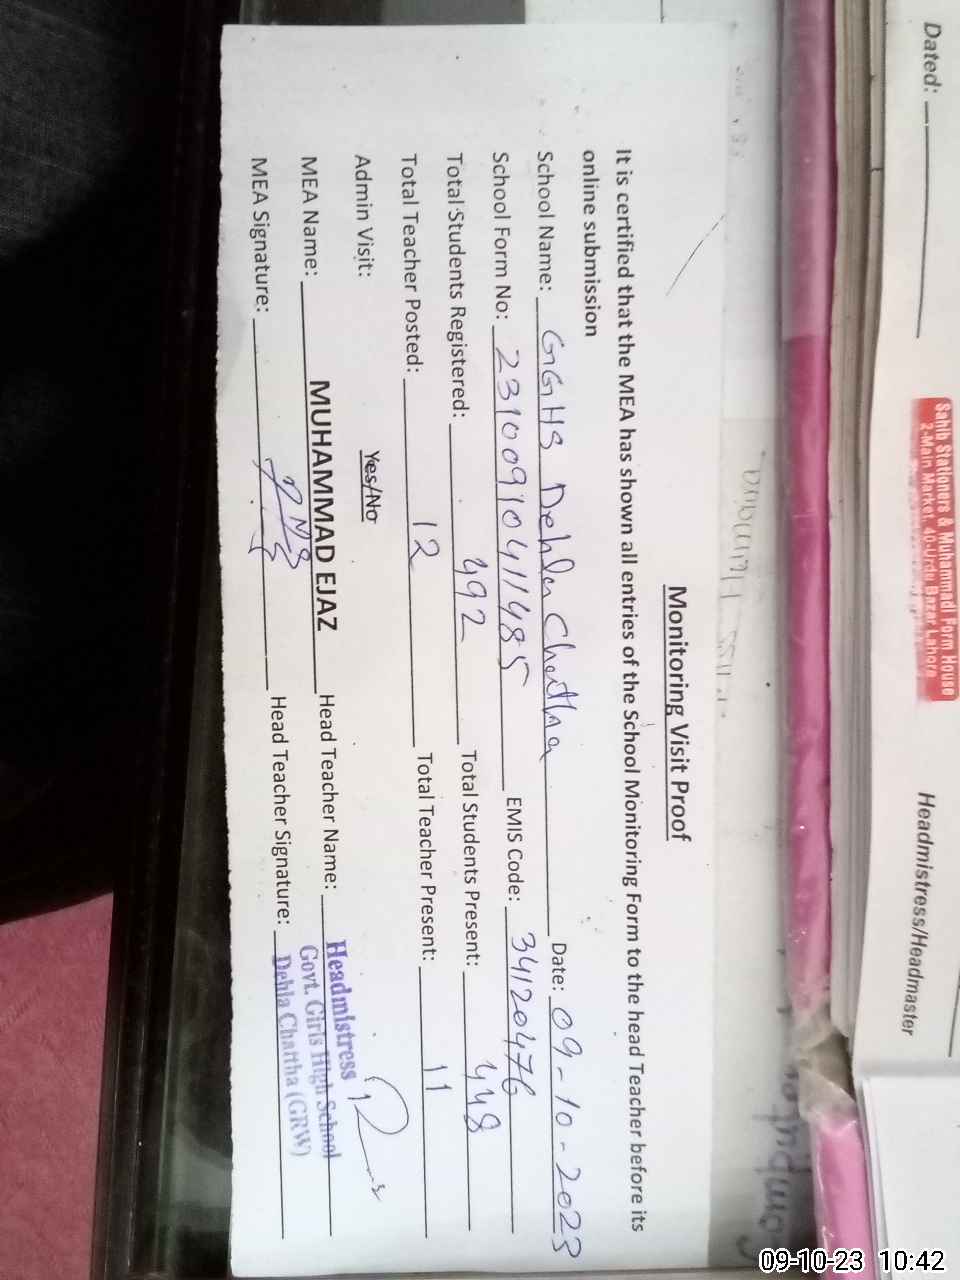 Monitoring Visit Proof
It is certified that the MEA has shown all entries of the School Monitoring Form to the head Teacher before its
online submission
School Name: GGHS Dehla Chattha Date: 09-10-2023
School Form No: 23100910411485 EMIS Code: 34120476
Total Students Registered: 492 Total Students Present: 448
Total Teacher Posted: 12 Total Teacher Present: 11
Admin Visit: Yes/No
MEA Name: MUHAMMAD EJAZ Head Teacher Name:
MEA Signature: Head Teacher Signature:
Headmistress
Govt. Girls High School
Dehla Chattha (GRW)
Dated:
Headmistress/Headmaster
Sahib Stationers & Muhammadi Form House
2-Main Market, 40-Urdu Bazar Lahore
09-10-23 10:42